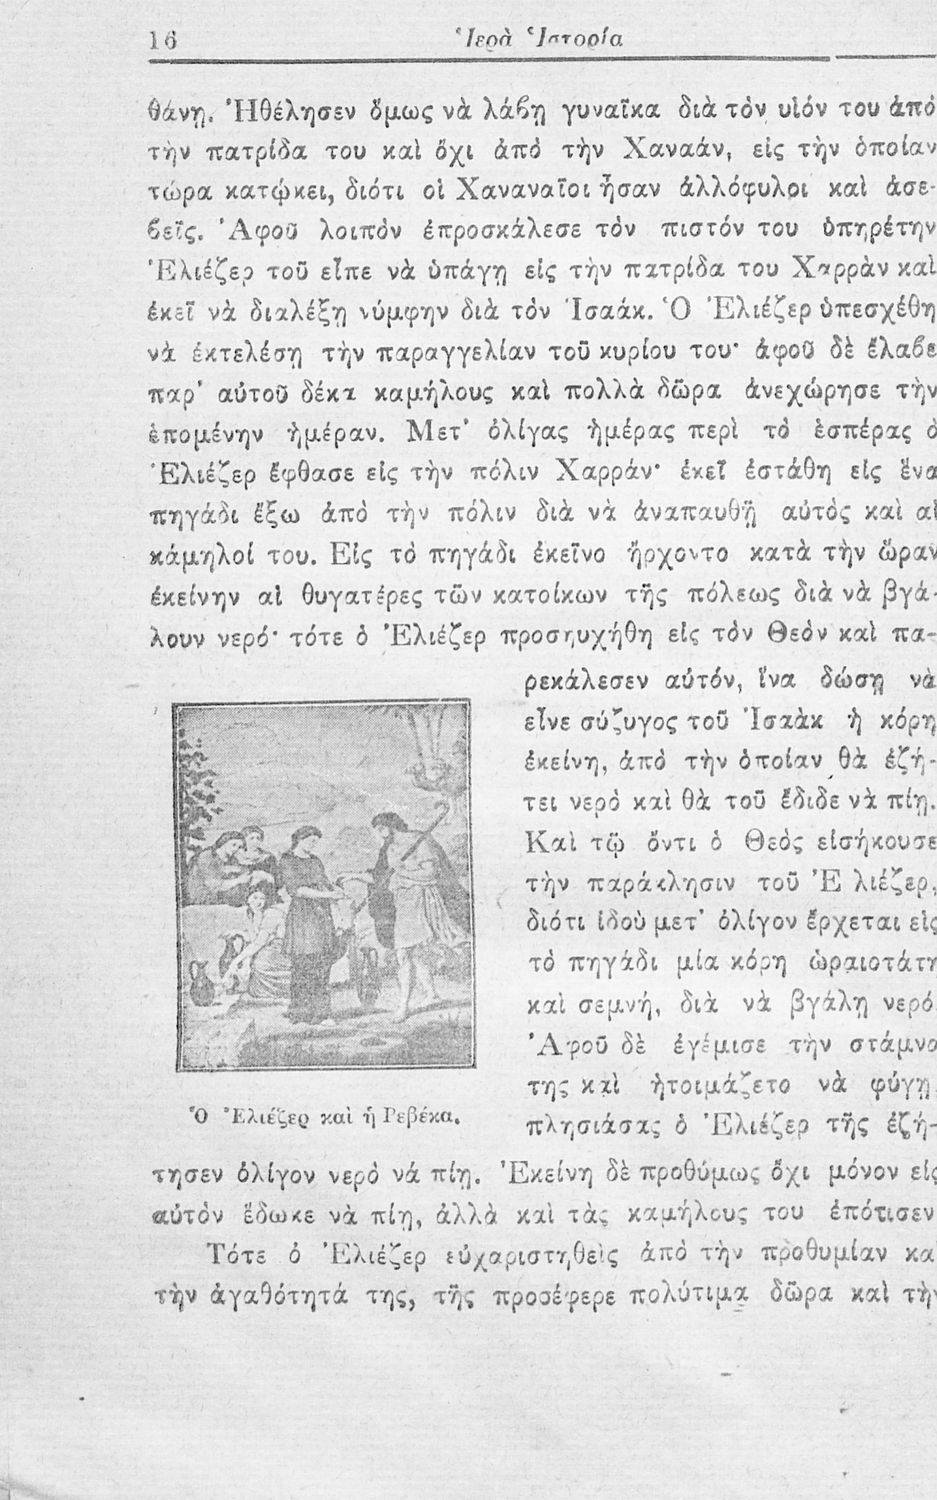 16
Ἱερὰ Ἱστορία
θάνῃ. Ἠθέλησεν ὅμως νὰ λάβῃ γυναῖκα διὰ τὸν υἱόν του ἀπὸ
τὴν πατρίδα του καὶ ὄχι ἀπὸ τὴν Χαναάν, εἰς τὴν ὁποίαν
τώρα κατῴκει, διότι οἱ Χαναναῖοι ἦσαν ἀλλόφυλοι καὶ ἀσε-
βεῖς. Ἀφοῦ λοιπὸν ἐπροσκάλεσε τὸν πιστόν του ὑπηρέτην
Ἐλιέζερ τοῦ εἶπε νὰ ὑπάγῃ εἰς τὴν πατρίδα του Χαρρὰν καὶ
ἐκεῖ νὰ διαλέξῃ νύμφην διὰ τὸν Ἰσαάκ. Ὁ Ἐλιέζερ ὑπεσχέθη
νὰ ἐκτελέσῃ τὴν παραγγελίαν τοῦ κυρίου του· ἀφοῦ δὲ ἔλαβε
παρ' αὐτοῦ δέκα καμήλους καὶ πολλὰ δῶρα ἀνεχώρησε τὴν
ἑπομένην ἡμέραν. Μετ' ὀλίγας ἡμέρας περὶ τὸ ἑσπέρας ὁ
Ἐλιέζερ ἔφθασε εἰς τὴν πόλιν Χαρράν· ἐκεῖ ἐστάθη εἰς ἕνα
πηγάδι ἔξω ἀπὸ τὴν πόλιν διὰ νὰ ἀναπαυθῇ αὐτὸς καὶ αἱ
κάμηλοί του. Εἰς τὸ πηγάδι ἐκεῖνο ἤρχοντο κατὰ τὴν ὥραν
ἐκείνην αἱ θυγατέρες τῶν κατοίκων τῆς πόλεως διὰ νὰ βγά-
λουν νερό· τότε ὁ Ἐλιέζερ προσηυχήθη εἰς τὸν Θεὸν καὶ πα-
ρεκάλεσεν αὐτόν, ἵνα δώσῃ νὰ
εἶνε σύζυγος τοῦ Ἰσαὰκ ἡ κόρη
ἐκείνη, ἀπὸ τὴν ὁποίαν θὰ ἐζή-
τει νερὸ καὶ θὰ τοῦ ἔδιδε νὰ πίῃ.
Καὶ τῷ ὄντι ὁ Θεὸς εἰσήκουσε
τὴν παράκλησιν τοῦ Ἐλιέζερ,
διότι ἰδοὺ μετ' ὀλίγον ἔρχεται εἰς
τὸ πηγάδι μία κόρη ὡραιοτάτη
καὶ σεμνή, διὰ νὰ βγάλῃ νερό
Ἀφοῦ δὲ ἐγέμισε τὴν στάμνα
της καὶ ἡτοιμάζετο νὰ φύγῃ
πλησιάσας ὁ Ἐλιέζερ τῆς ἐζή-
Ὁ Ἐλιέζερ καὶ ἡ Ρεβέκα.
τησεν ὀλίγον νερὸ νὰ πίῃ. Ἐκείνη δὲ προθύμως ὄχι μόνον εἰς
αὐτὸν ἔδωκε νὰ πίῃ, ἀλλὰ καὶ τὰς καμήλους του ἐπότισεν
Τότε ὁ Ἐλιέζερ εὐχαριστηθεὶς ἀπὸ τὴν προθυμίαν κα
τὴν ἀγαθότητά της, τῆς προσέφερε πολύτιμα δῶρα καὶ τὴν